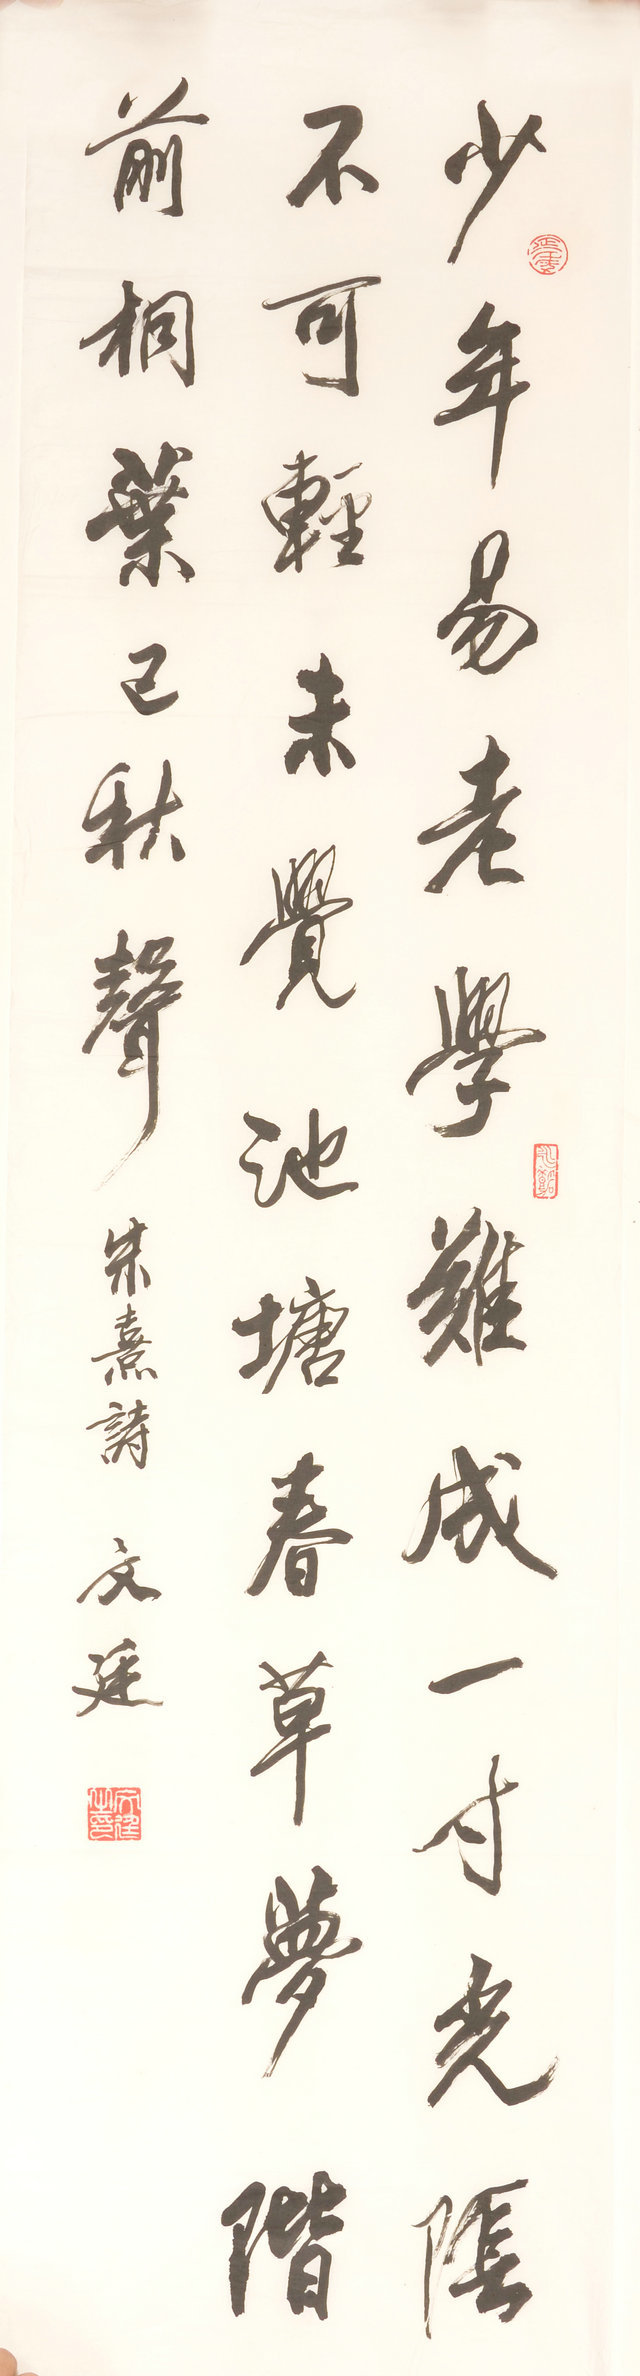 少年易老學難成一寸光陰
不可輕未覺池塘春草夢階
前桐葉已秋聲
朱熹詩 文廷